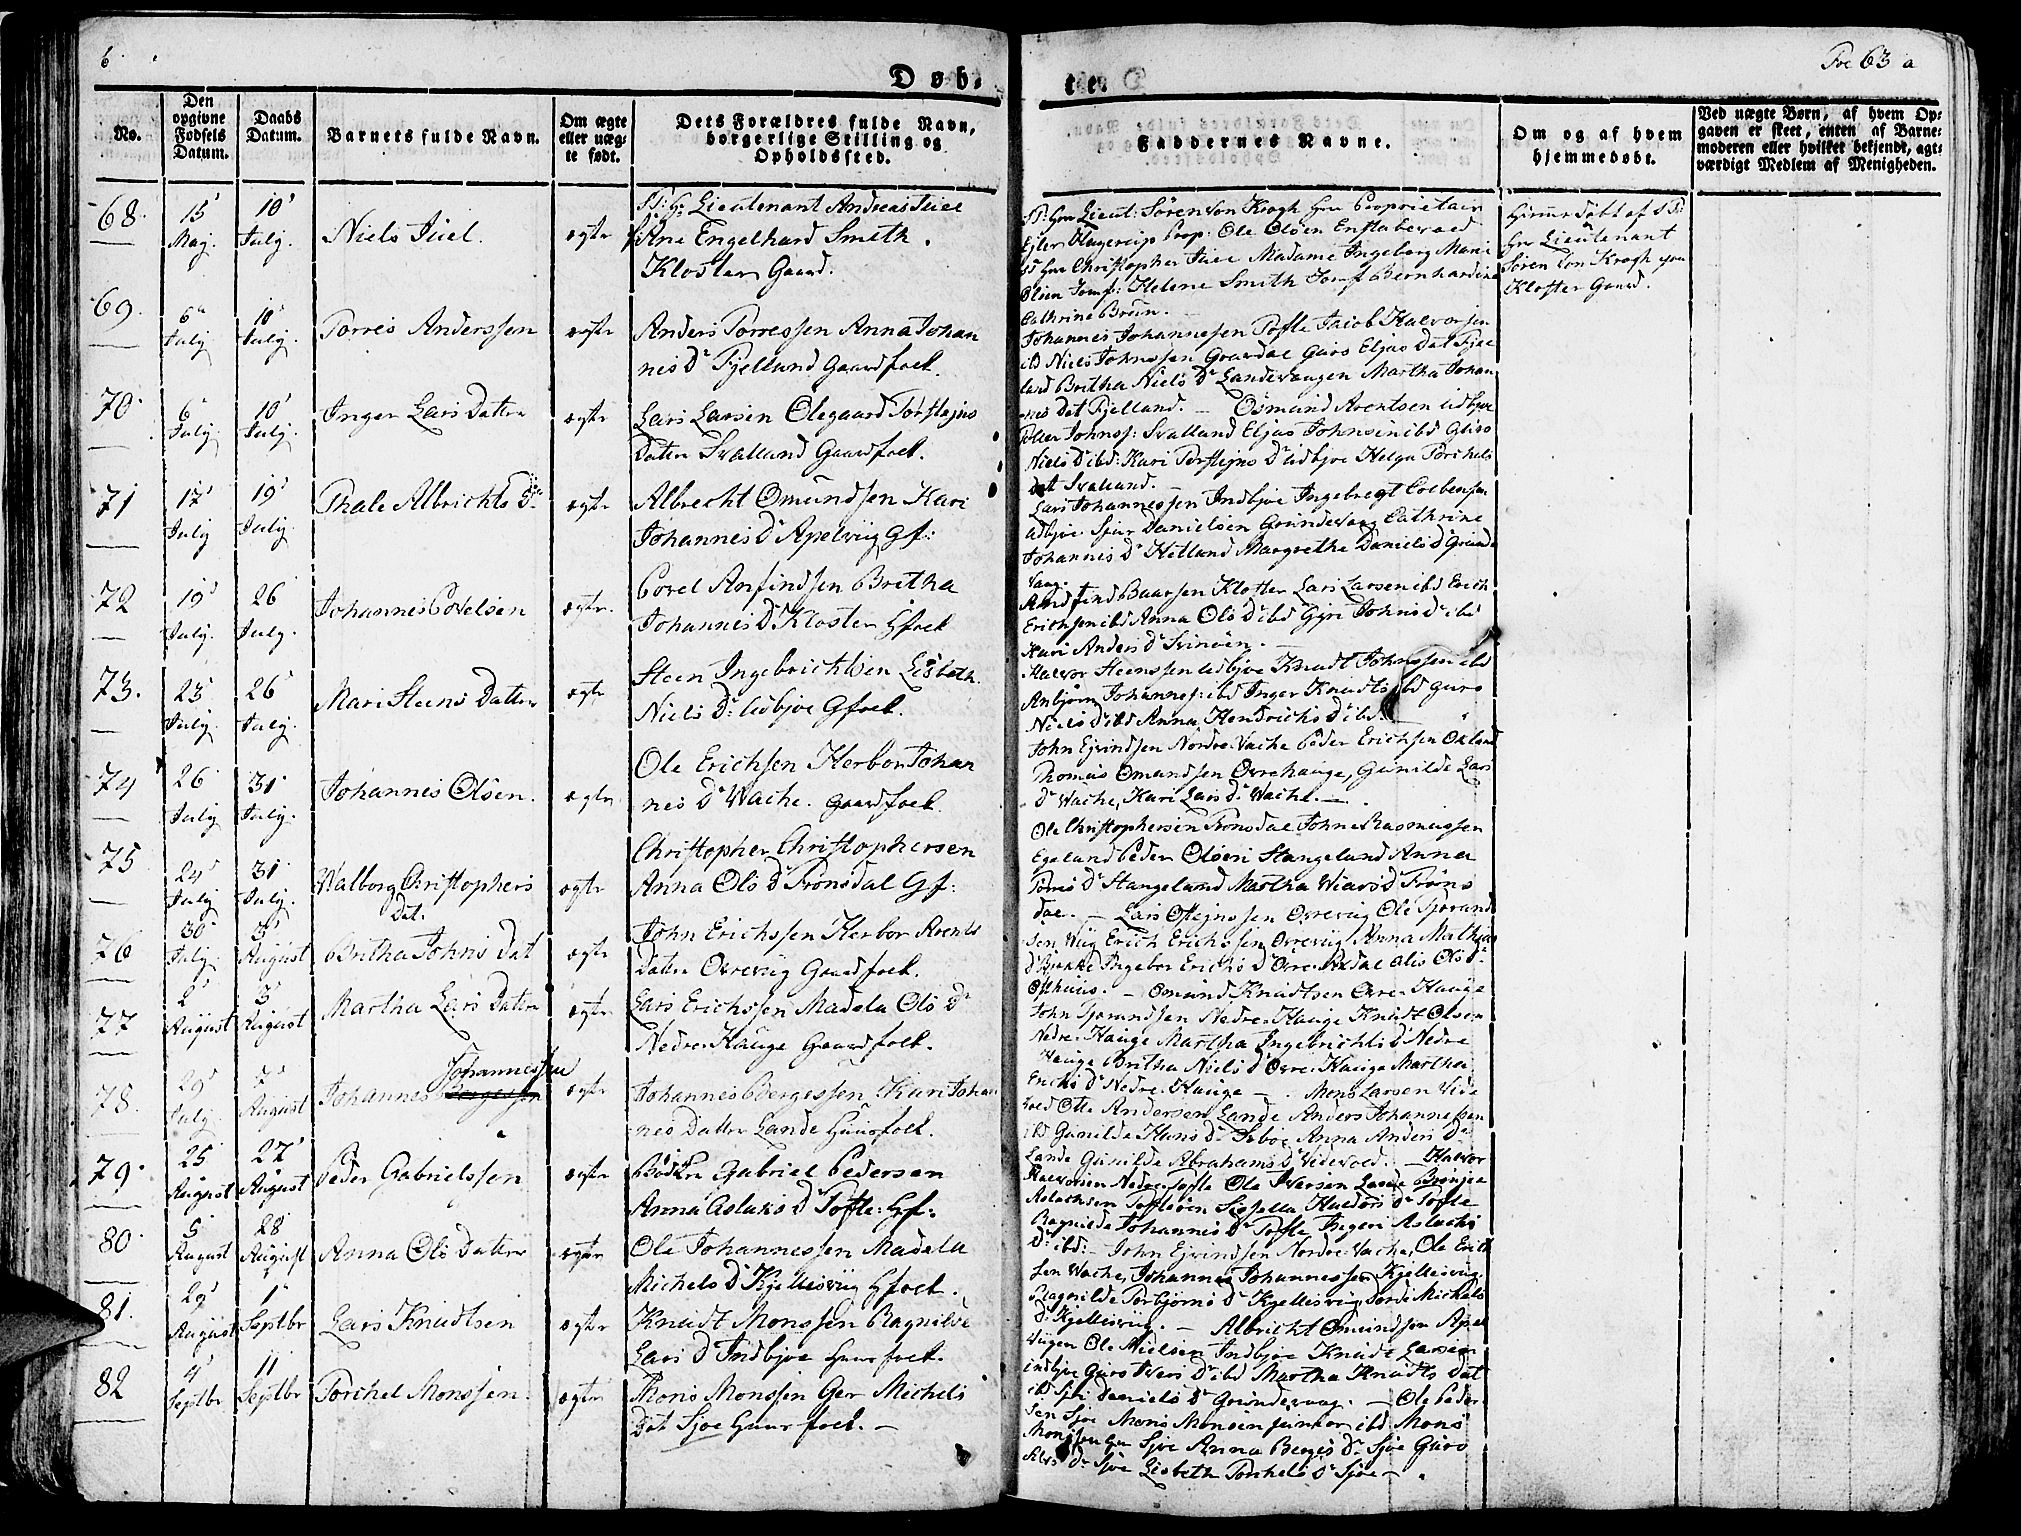 6.
Fol 63 a
Døb-
te.
No.
Den opgivne Fødsels Datum.
Daabs Datum.
Barnets fulde Navn.
Om ægte eller uægte født.
Dets Forældres fulde Navn, borgerlige Stilling og Opholdssted.
Faddernes Navne.
Om og af hvem hjemmedøbt.
Ved uægte Børn, af hvem Opgaven er skeet, enten af Barnemoderen eller hvilket bekjendt, agtværdigt Medlem af Menigheden.
68.
15 Maj.
10 July.
Niels Juel.
ægte
Lieutenant Andreas Juel
Ane Engelhard Smith.
Kloster Gaard.
Lieut: Søren Von Krogh Hr Proprietair
Prop: Ole Olsen Enstabevold
Hr Christopher Juel Madame Ingeborg Marie
Olsen Jomf: Helene Smith Jomf Bernhardine
Cathrine Brun.
Hjemmedøbt af S T:
Hr Lieutenant
Søren Von Krogh paa
Kloster Gaard.
69.
6 July
10 July.
Torris Anderssen
ægte
Anders Torressen Anna Johan
nes D Fjelland Gaardfolk.
Johannes Johannesen Tofte Jacob Halvorsen
ibd Niels Johnssen Guro Elias Dat Fjel
land Britha Niels D Landevaagen Martha Johan
nes Dat Fjelland.
70.
6 July
10 July.
Inger Lars Datter
ægte
Lars Larsen Olegaard Torstejns
Datter Svalland Gaardfolk.
Osmund Arentsen Udbjoe
Peder Johnss: Svalland Elias Johnsen ibd Guro
Niels D ibd: Kari Torstejns D Udbjoe Helga Torchels
Dat Svalland.
71
17 July
19 July.
Thale Albrichts D
ægte
Albrecht Omundsen Kari
Johannes D Apelviig Gf:
Lars Johannessen Indbjoe Ingebregt Colbensen
Udbjoe Sjur Danielsen Grundevaag Cathrine
Johannes D Hetland Margrethe Daniels D Grunde
vaag.
72
19 July.
26 July.
Johannes Povelsen
ægte.
Povel Anfindsen Britha
Johannes D Kloster Hfolk
Andfind Baarsen Kloster Lars Larsen ibd Erich
Erichsen ibd Anna Ols D ibd Gyri Johns D ibd
Kari Anders D Svinøen.
73.
23 July.
26 July.
Mari Steens Datter
ægte
Steen Ingebrichtsen Lisbeth
Niels D: Udbjoe Gfolk.
Halvor Steenssen Udbjoe Knudt Johnssen ibd
Anbjørn Johannes: ibd Inger Knudts ibd Guro
Niels D ibd Anna Hendrichs D ibd.
74
26 July
31 July.
Johannes Olsen.
ægte
Ole Erichsen Herbor Johan
nes D Wache. Gaardfolk.
John Ejvindsen Nordre-Vache Peder Erichsen Økland
Thomas Omundsen Øvrehauge, Gunilde Lars
D Wache, Kari Lars D. Wache.
75.
24 July
31 July.
Walborg Christophers
Dat.
ægte
Christopher Christophersen
Anna Ols D Fronsdal Gf:
Ole Christophersen Fronsdal John Rasmussen
Egeland Peder Olsen Stangeland Anna
Torris D Stangeland Martha Wiars D Frons
dal.
76
30 July.
3 August
Britha Johns Dat
ægte
John Erichssen Herbor Arents
Datter Øvreviig Gaardfolk.
Lars Ostejnssen Øvreviig Ole Sjovund
sen Wiig Erich Erichssen Øvreviig Anna Mathias
D Ingebor Erichs D Øvre Alis Ols D
Østhuus.
77
2 August
3 August
Martha Lars Datter
ægte
Lars Erichssen Madela Ols D
Nedre-Hauge Gaardfolk.
Omund Knudtsen Øvre-Hauge
John Sjovundsen Nedre-Hauge Knudt Olsen
Nedre-Hauge Martha Ingebrichts D Nedre
Hauge Britha Niels D Øvre-Hauge Martha
Erichs D Nedre Hauge
78.
29 July.
7 August
Johannes Bergessen
Johannessen
ægte
Johannes Bergessen Kari Johan
nes Datter Lande Huusfolk.
Mons Larsen Vide
vold Otte Andersen Lande Anders Johannessen
ibd Gunilde Hans D Seboe Anna Anders D
Lande Gunilde Abrahams D Videvold.
79.
25 August
27 August
Peder Gabrielssen
ægte
Gabriel Pedersen
Anna Aslaks D Tofte: Hf:
Halvor
Halvorsen Nedre-Tofte Ole Iversen Brynjel
Aslachsen Tofteøen Sissella Haldors D Tofte
Ragnilde Johannes D Tofte Ingeri Aslachs
D ibd:
80.
5 August
28 August
Anna Ols Datter
ægte
Ole Johannessen Madela
Michels D Kjellesviig Hfolk.
John Ejvindsen Nordre-Vache, Ole Erich
sen Wache, Johannes Johannessen Kjellesviig
Ragnilde Torbjørns D Kjellesviig, Michels
D Kjellesviig.
81.
29 August
1 Septbr
Lars Knudtsen
ægte
Knudt Monssen Ragnilde
Lars D Indbjoe Huusfolk.
Albricht Omundsen Apel
viigen Ole Nielsen Indbjoe Knudt Larsen
indbjoe Guro Ivers D ibd Martha Knudts Dat
ibd Siri Daniels D Grundevaag.
82
4 Septbr
11 Septbr
Torchel Monssen.
ægte
Mons Monssen Ger Michels
Dat Sjoe Huusfolk.
Ole Peder
sen Sjoe Mons Monsen junior ibd Mons
Monssen Sjoe Anna Berges D Sjoe Guro
D Sjoe Lisbeth Torchels D Sjoe